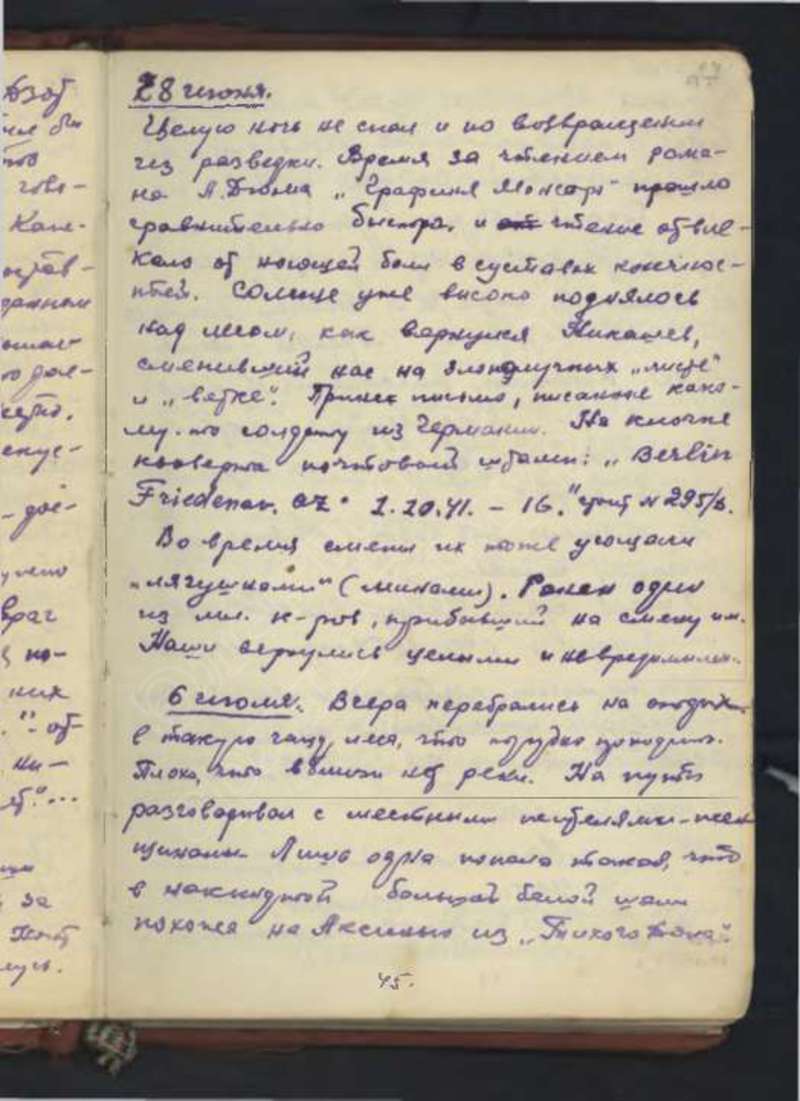 28 июня.
Целую ночь не спал и по возвращении
из разведки. Время за чтением рома-
на А. Дюма „Графиня Монсоро" прошло
сравнительно быстро, и чтение отвле-
кало от ноющей боли в суставах конечнос-
тей. Солнце уже высоко поднялось
над лесом, как вернулся Никашев,
сменивший нас на злополучных
и „ветке". Принес письмо, писанное како-
му-то солдату из Германии. На клочке
конверта почтовый штамп: „Berlin
Friedenau. az. 1.10.41. – 16." № 295/в.
Во время смены их тоже угощали
„лягушками" (минами). Ранен один
из мл. к-ров, прибывший на смену им.
Наши вернулись целыми и невредимыми.
6 июля. Вчера перебрались на отдых
в такую чащу леса, что
Плохо, что вблизи нет реки. На пути
разговаривал с местными жителями-жен
щинами. Лишь одна попала такая, что
в накинутой большой белой шали
похожа на Аксинью из „Тихого Дона".
45.
дзот
гово-
враг
них
за